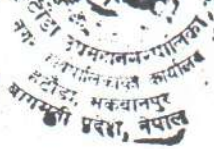 उपमहानगरपालिका
नगर कार्यपालिकाको कार्यालय
हेटौंडा, मकवानपुर
बागमती प्रदेश, नेपाल